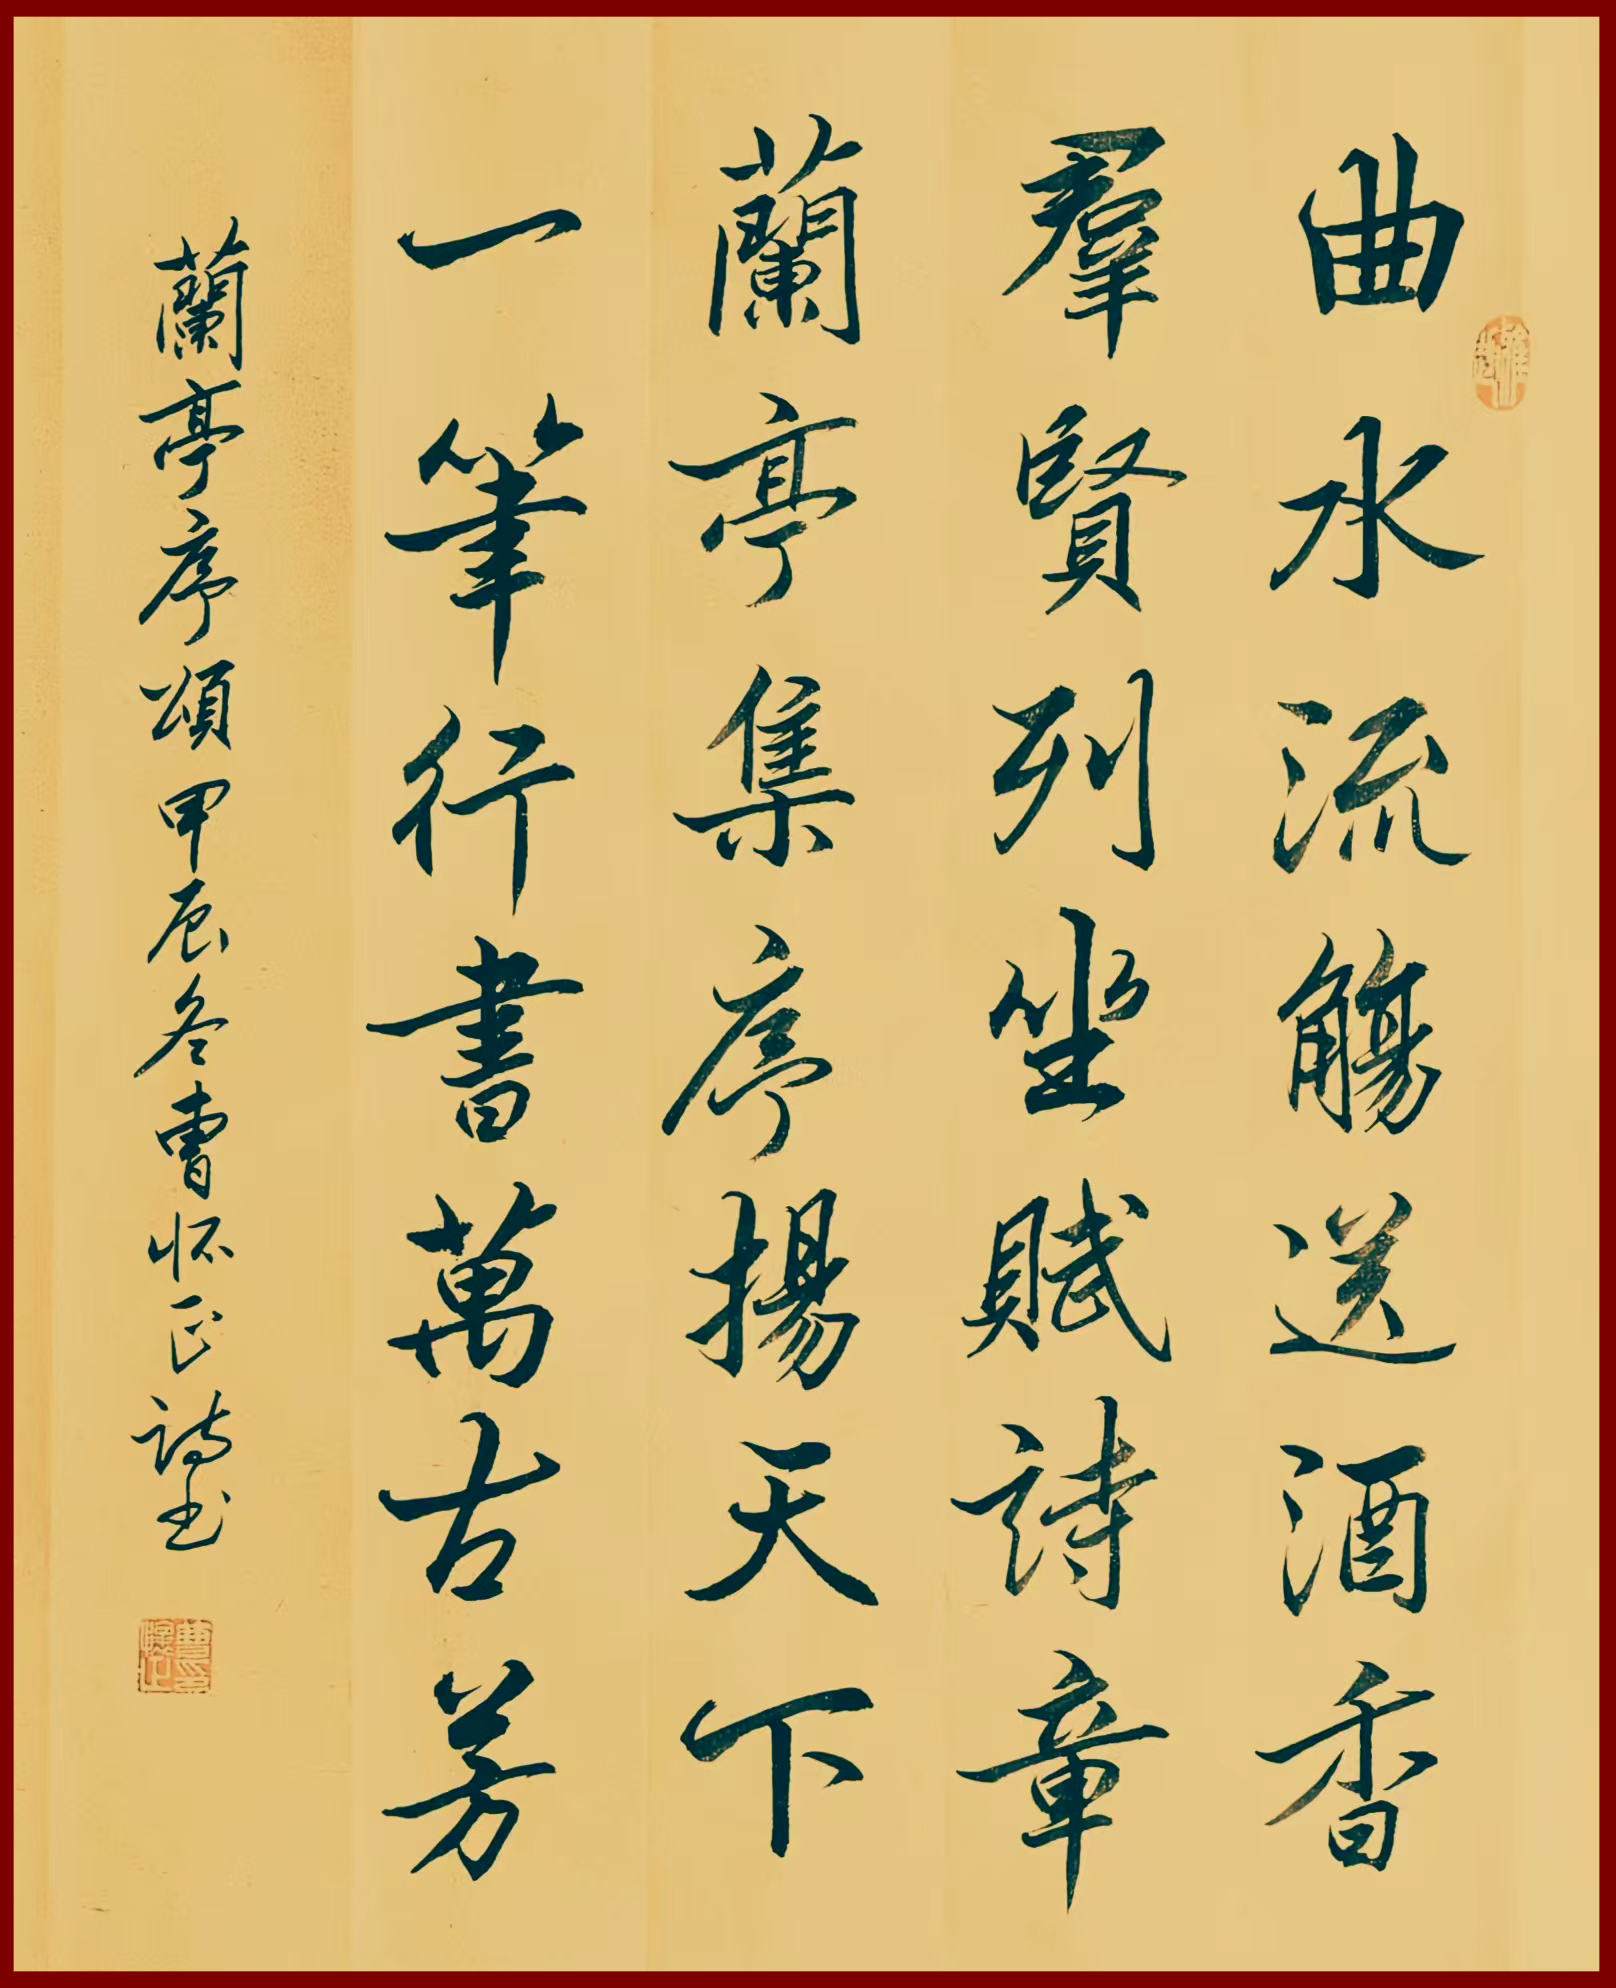 曲水流觴送酒香
羣賢列坐賦詩章
蘭亭集序揚天下
一筆行書萬古芳
蘭亭序頌甲辰冬曹怀正詩书
曹懷正印